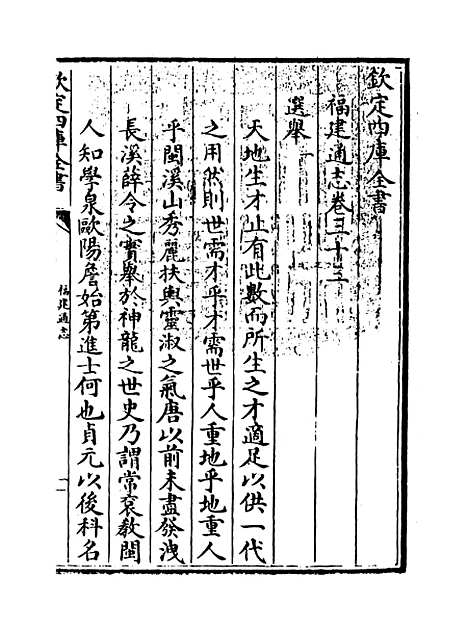 欽定四庫全書
福建通志卷三十三
選舉
天地生才止有此數而所生之才適足以供一代
之用然則世需才乎才需世乎人重地乎地重人
乎閩溪山秀麗扶輿靈淑之氣唐以前未盡發洩
長溪薛令之實舉於神龍之世史乃謂常衮教閩
人知學泉歐陽詹始第進士何也貞元以後科名
欽定四庫全書
福建通志
一